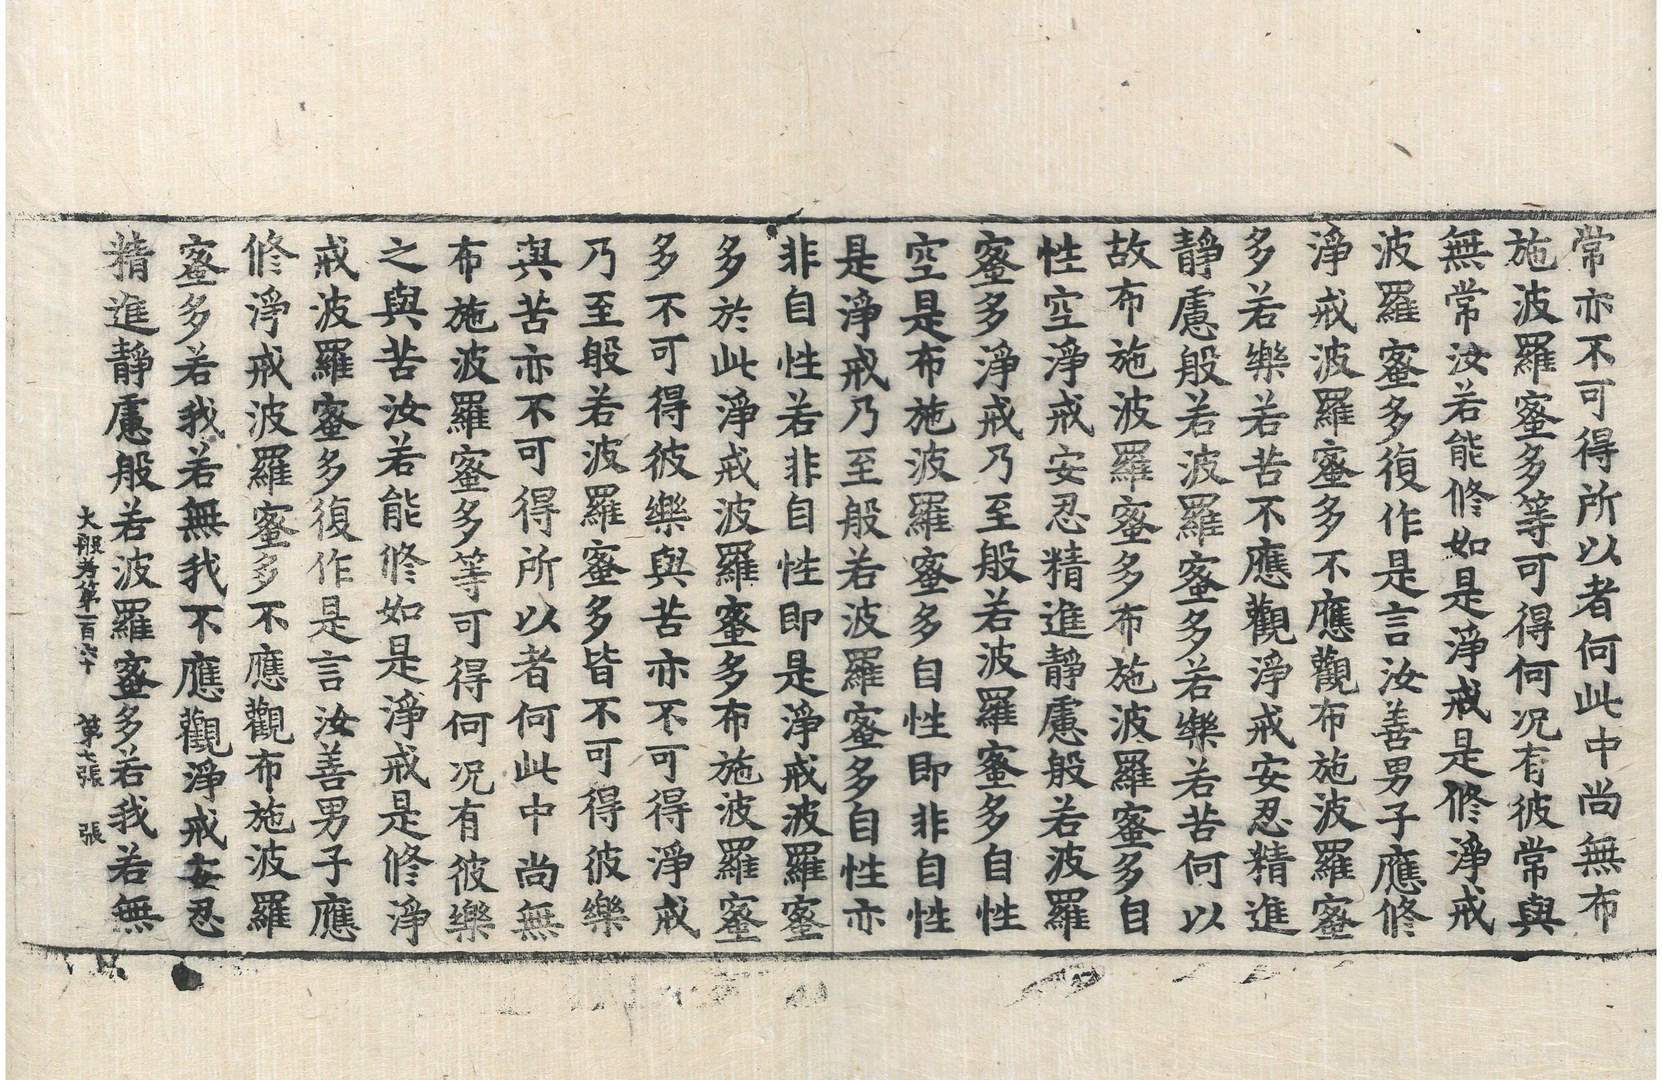 常亦不可得所以者何此中尚無布
施波羅蜜多等可得何况有彼常與
無常汝若能修如是淨戒是修淨戒
波羅蜜多復作是言汝善男子應修
淨戒波羅蜜多不應觀布施波羅蜜
多若樂若苦不應觀淨戒安忍精進
靜慮般若波羅蜜多若樂若苦何以
故布施波羅蜜多布施波羅蜜多自
性空淨戒安忍精進靜慮般若波羅
蜜多淨戒乃至般若波羅蜜多自性
空是布施波羅蜜多自性即非自性
是淨戒乃至般若波羅蜜多自性亦
非自性若非自性即是淨戒波羅蜜
多於此淨戒波羅蜜多布施波羅蜜
多不可得彼樂與苦亦不可得淨戒
乃至般若波羅蜜多皆不可得彼樂
與苦亦不可得所以者何此中尚無
布施波羅蜜多等可得何况有彼樂
之與苦汝若能修如是淨戒是修淨
戒波羅蜜多復作是言汝善男子應
修淨戒波羅蜜多不應觀布施波羅
蜜多若我若無我不應觀淨戒安忍
精進靜慮般若波羅蜜多若我若無
大般若第一百六十 第七張 張